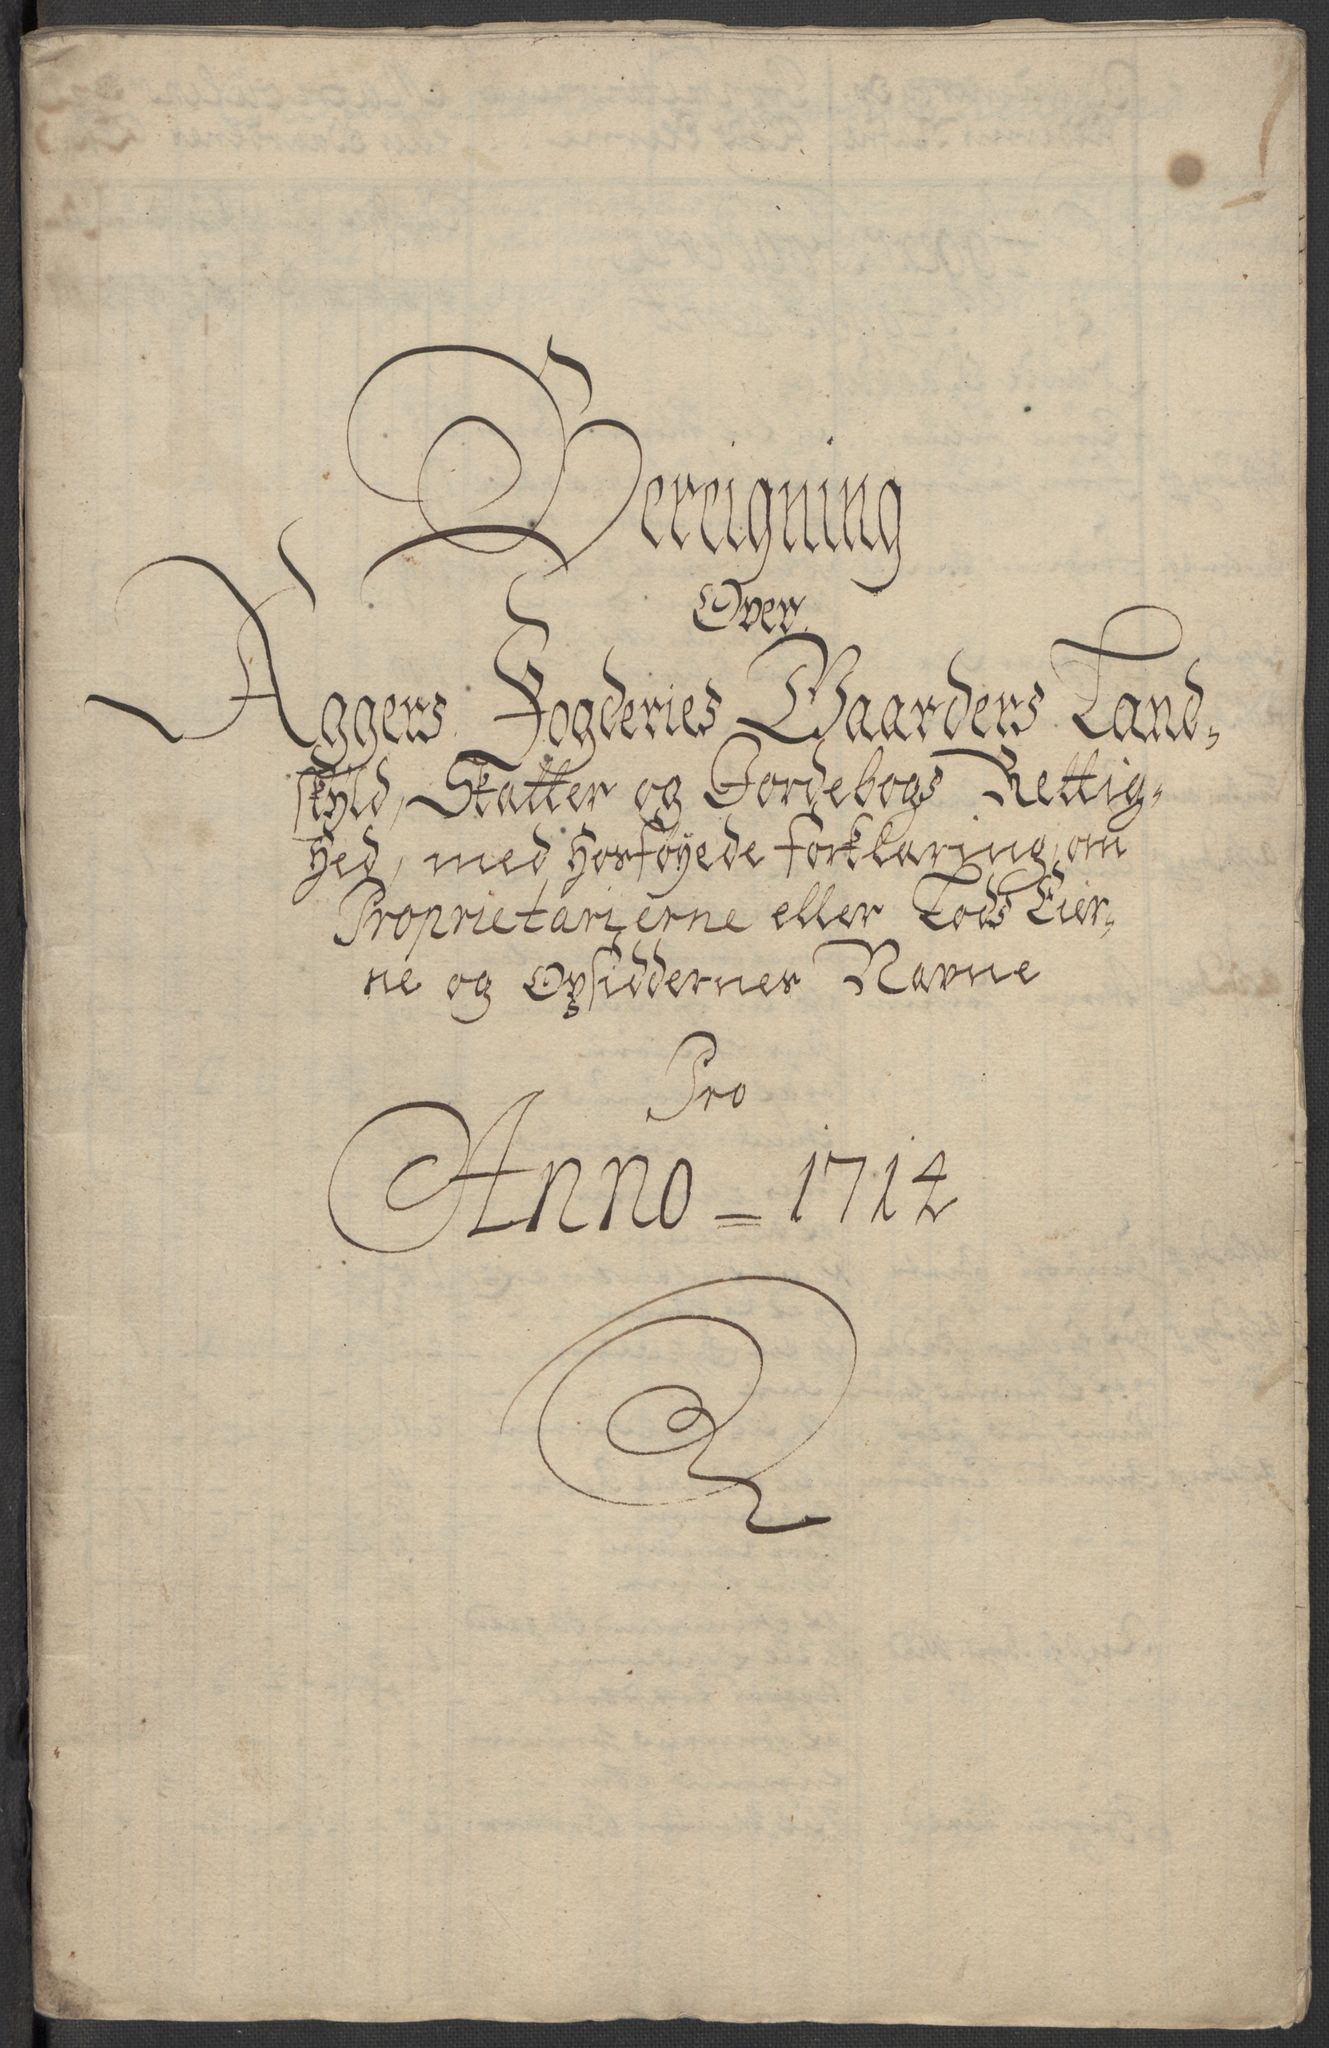 Bereigning
Over
Aggers Fogderies Gaarders Land-
skyld, Skatter og Jordebogs Rettig-
hed, med hosføyede forklaring om
Proprietarierne eller Lods Eier-
ne og Opsiddernes Navne
Pro
Anno = 1714